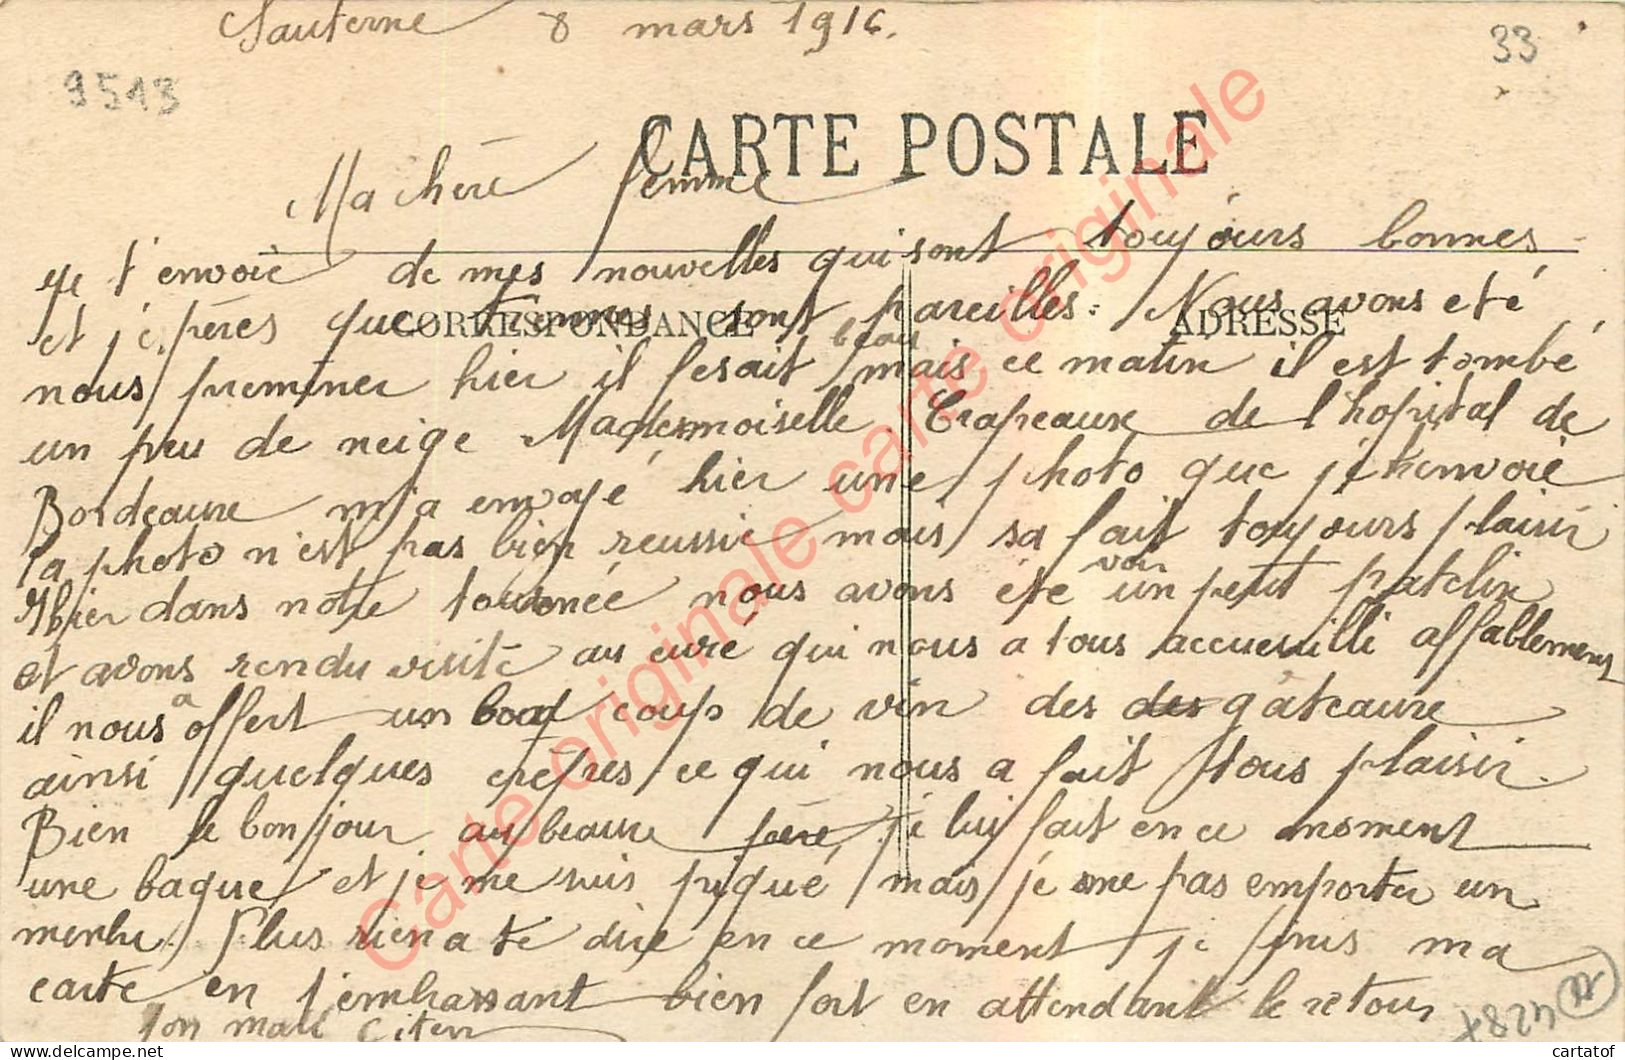 Sauterne 8 mars 1916.
33
9513
CARTE POSTALE
Ma chère femme
je t'envoie de mes nouvelles qui sont toujours bonnes
CORRESPONDANCE
ADRESSE
et j'espères que tiennes sont pareilles. Nous avons eté
nous preminer hier il fesait beau mais ce matin il est tombé
un peu de neige Mademoiselle Trapeaux de l'hopital de
Bordeaux m'a envoyé hier une photo que je t'envoie
la photo n'est pas bien reussie mais sa fait toujours plaisir
Hier dans notre tournée nous avons éte voir un petit patelin
et avons rendu visite au curé qui nous a tous accueuilli affablement
il nous a offert un bon coup de vin des des gâteaux
ainsi quelques crêpes ce qui nous a fait tous plaisir.
Bien le bonjour au beaux père je lui fait en ce moment
une bague et je me suis piqué mais je me pas emporter un
membre. Plus rien a te dire en ce moment je finis ma
carte en t'embrassant bien fort en attendant le retour
ton mari
4284
Carte originale carte originale
cartatof